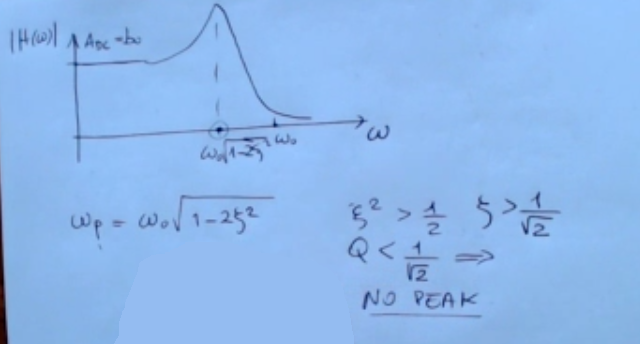 |H(ω)| A_DC = b₀
ω
ω₀√1-2ζ ω₀
ωₚ = ω₀√1-2ξ² ξ² > 1/2 ξ > 1/√2
Q < 1/√2 ⇒
NO PEAK